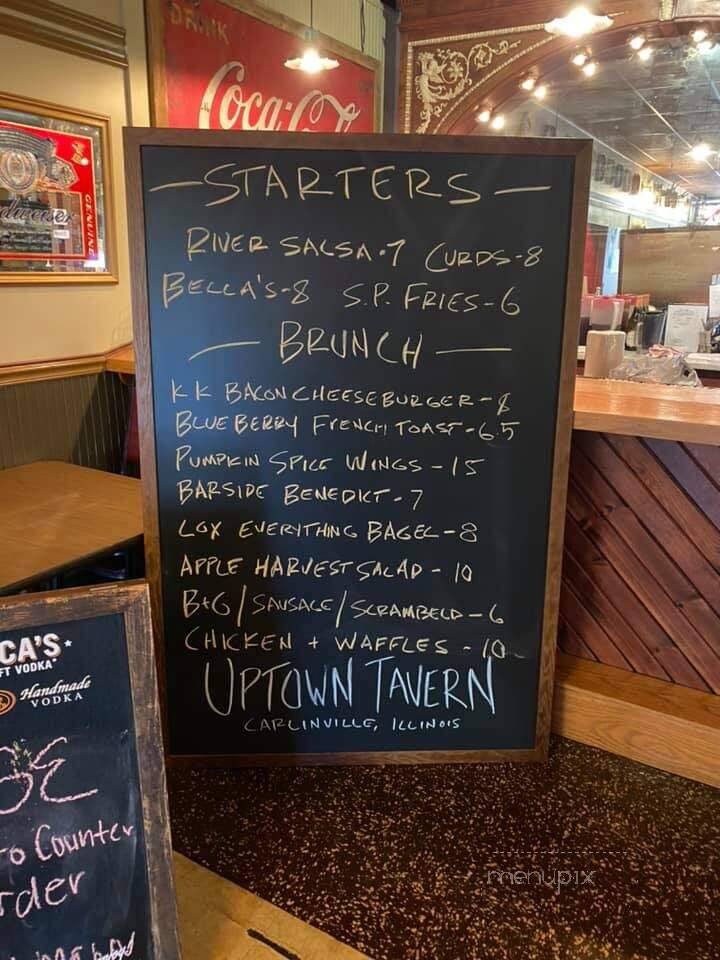 DRINK
Coca-Cola
GENUINE
— STARTERS —
RIVER SALSA · 7 CURDS - 8
BELLA'S - 8 S.P. FRIES - 6
— BRUNCH —
KK BACON CHEESEBURGER - 8
BLUEBERRY FRENCH TOAST - 6.5
PUMPKIN SPICE WINGS - 15
BARSIDE BENEDICT - 7
LOX EVERYTHING BAGEL - 8
APPLE HARVEST SALAD - 10
B+G / SAUSAGE / SCRAMBELD - 6
CHICKEN + WAFFLES - 10
UPTOWN TAVERN
CARLINVILLE, ILLINOIS
CA'S
FT VODKA
Handmade
VODKA
to Counter
rder
menupix